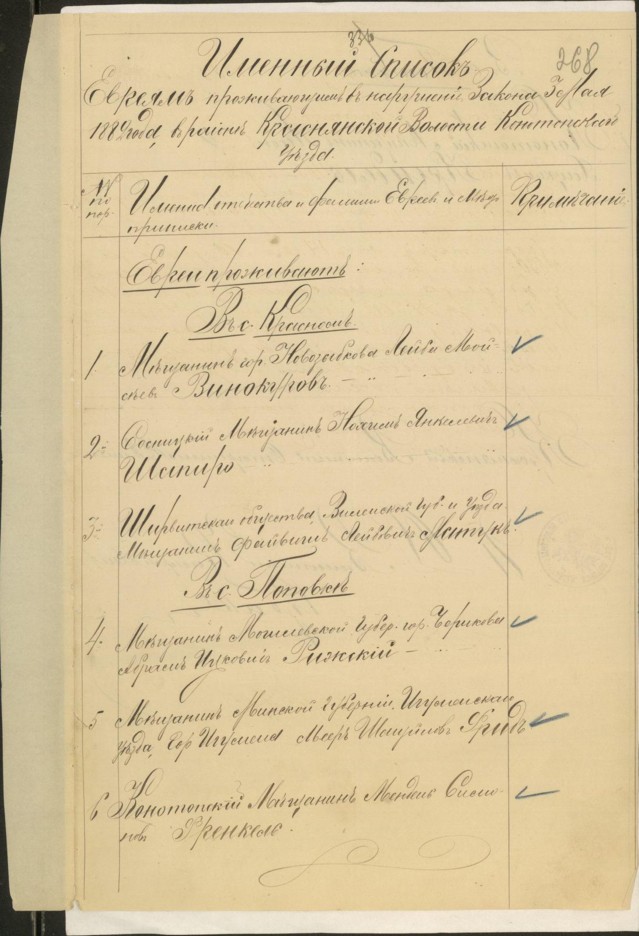 336
268
Именный Списокъ
Евреямъ проживающимъ въ нарушеніи Закона 3го Мая
1882 года, въ районѣ Краснянской Волости Конотопскаго
уѣзда.
№№ по пор.
Имена отчества и фамиліи Евреев и мѣсто приписки.
Примѣчаніе
Евреи проживаютъ:
Въ с. Красномъ.
1 Мѣщанинъ гор. Новозыбкова Лейба Мой-
сѣевъ Винокуровъ.
2 Сосницкій Мѣщанинъ Нохимъ Янкелевичъ
Шапиро
3 Ширвинтскаго общества, Виленской Губ. и уѣзда
Мѣщанинъ Файвишъ Лейбовичъ
Въ с. Поповкѣ
4. Мѣщанинъ Могилевской Губер. гор. Черикова
Абрамъ Ицковичъ Рижскій
5 Мѣщанинъ Минской Губерніи, Игуменскаго
уѣзда, гор Игумена Мееръ Шмуйловъ
6 Конотопскій Мѣщанинъ Мендель Симо-
новъ Френкель.